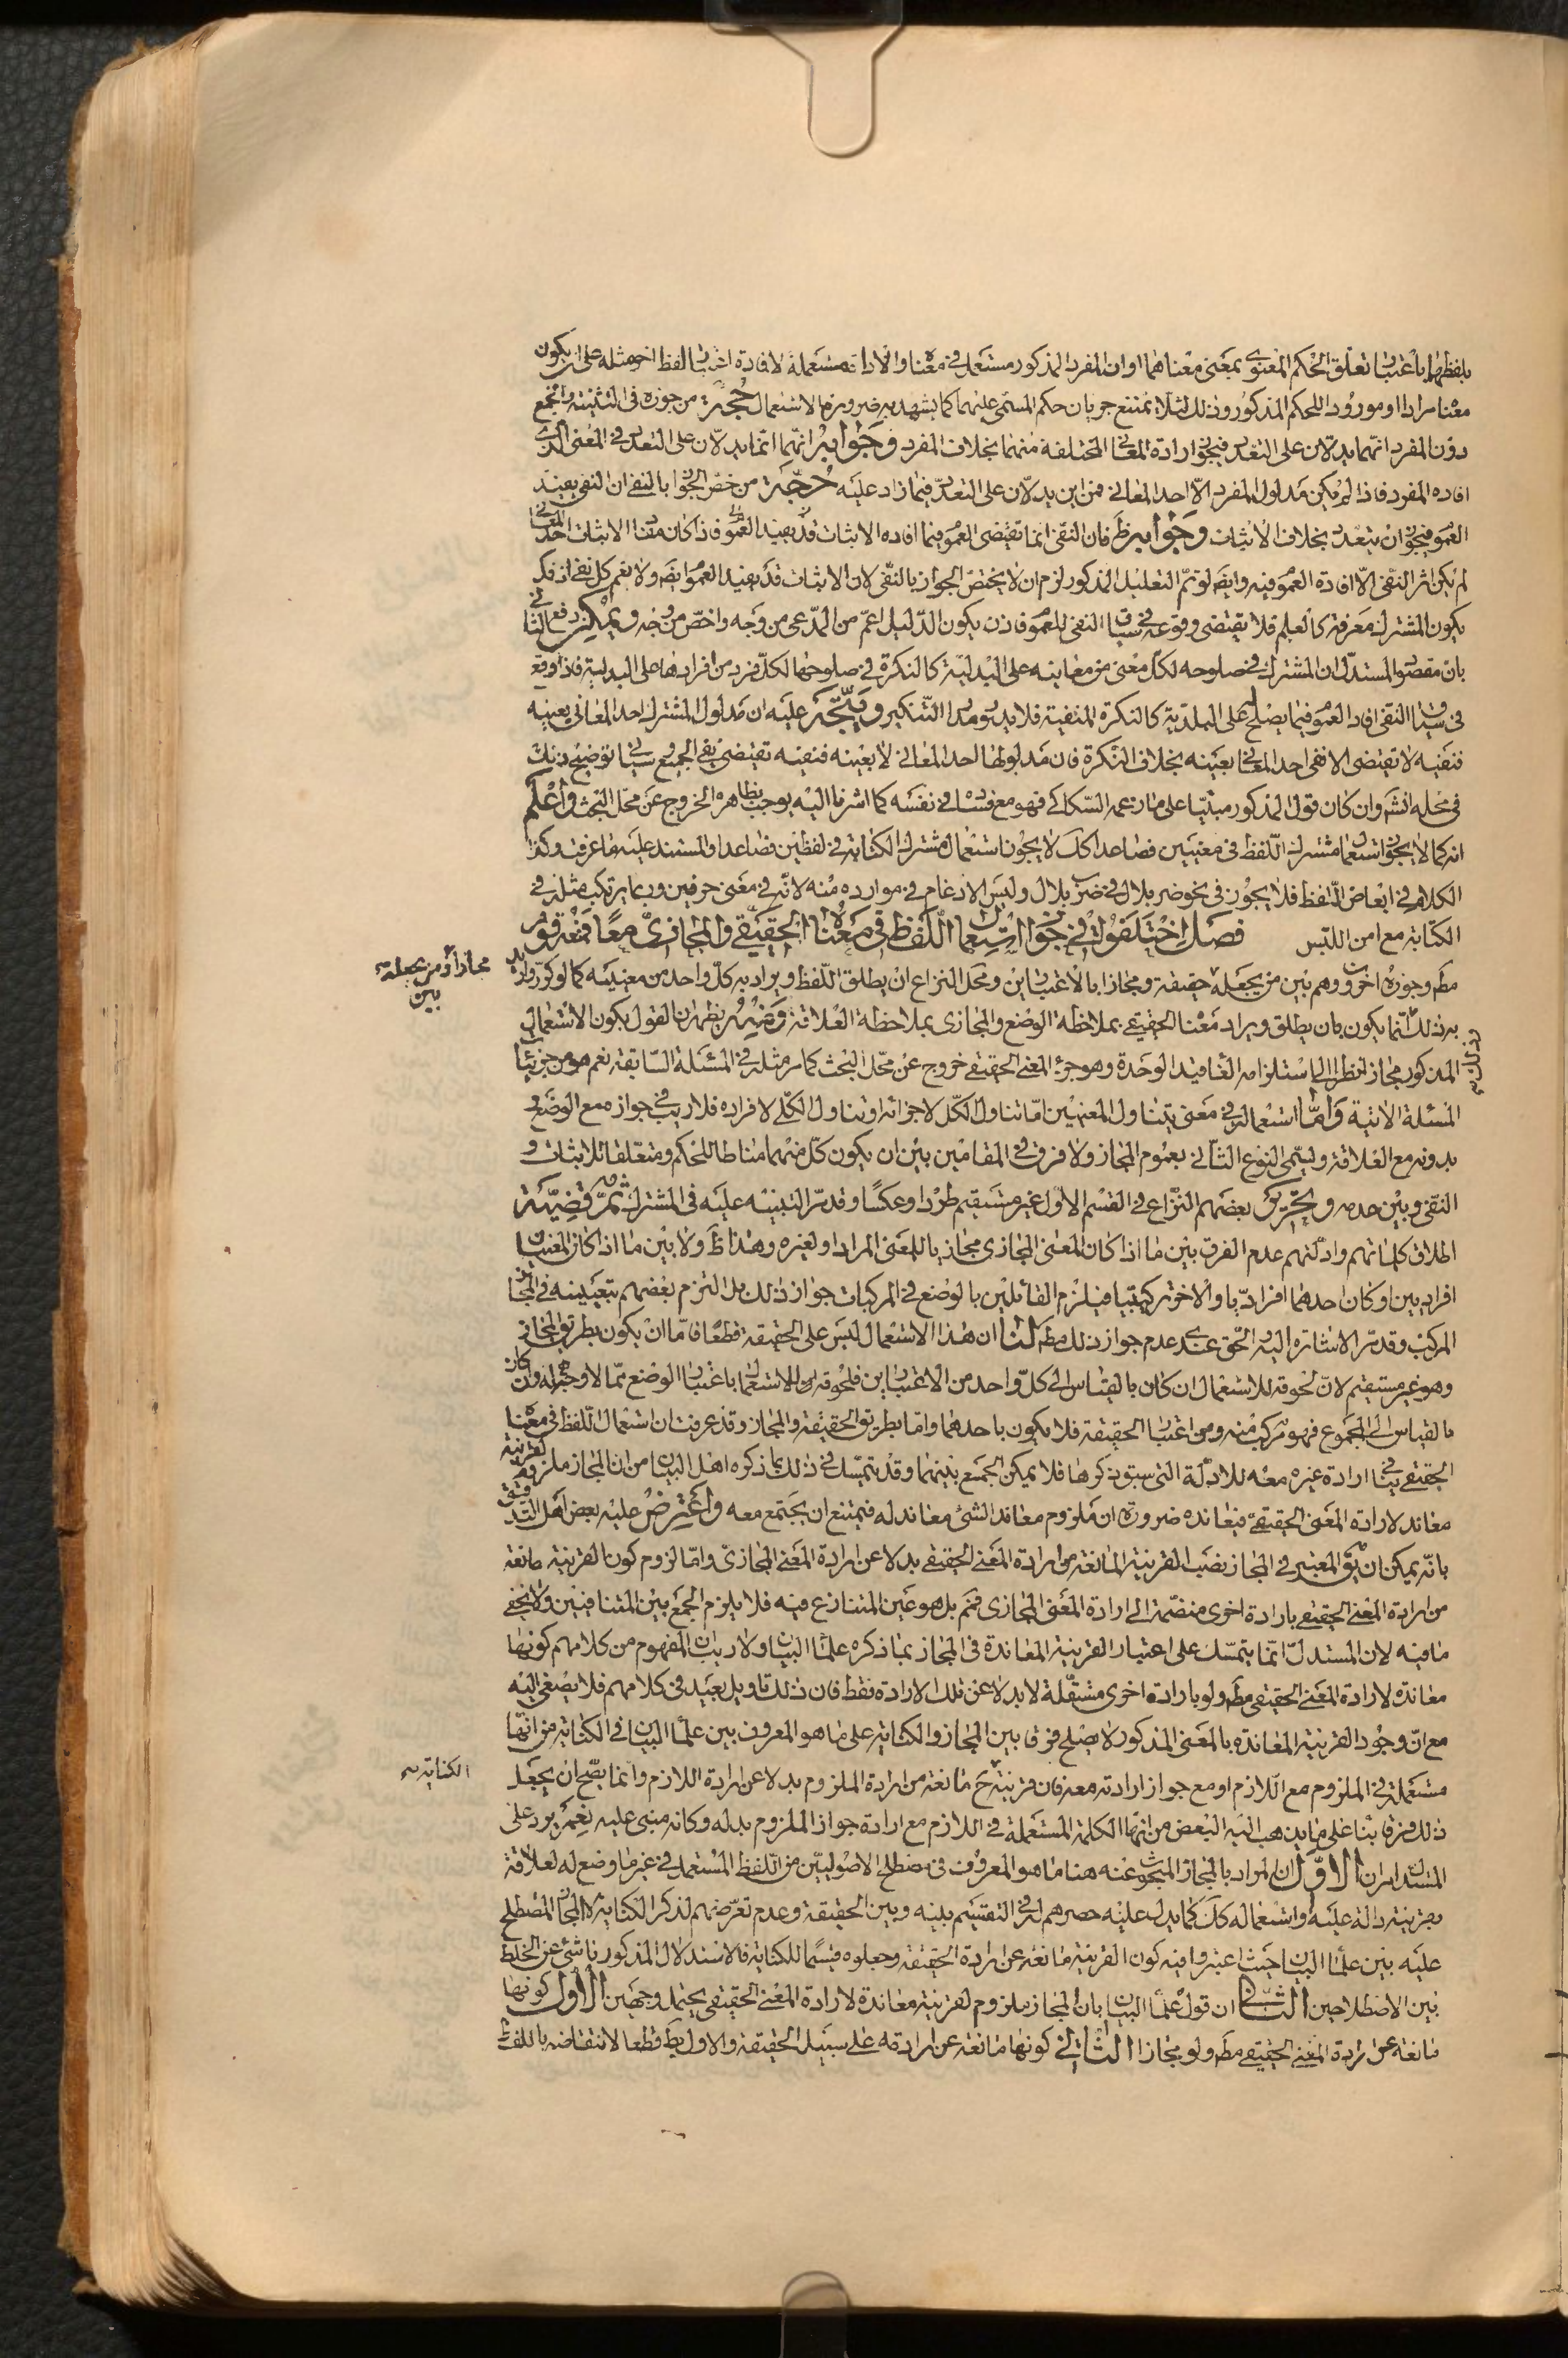 بلفظهما باعتبار تعلق الحكم المعنوى بمعنى معناهما او ان المفرد المذكور مستعمل فى معناه والاداة مستعملة لافادة اعتبار لفظ اخر مثله على ان يكون
معناه مرادا او مورودا للحكم المذكور وذلك لئلا يمتنع جريان حكم المسمى عليهما كما يشهد به ضرورة الاستعمال حجة من جوزه فى التثنية والجمع
دون المفرد انهما يدلان على التعدد فيجوز ارادة المعانى المختلفة منهما بخلاف المفرد وجوابه انهما انما يدلان على التعدد فى المعنى الذى
افاده المفرد فاذا لم يكن مدلول المفرد الا احد المعانى فمن اين يدلان على التعدد فيما زاد عليه حجة من خص الجواز بالنفى ان النفى يفيد
العموم فيجوز ان يتعدد بخلاف الاثبات وجوابه ظ فان النفى انما تقتضى العموم فيما افاده الاثبات قد يفيد العموم فاذا كان مفاد الاثبات احد المعانى
لم يكن اثر النفى الا افادة العموم فيه وايضا لو تم التعليل المذكور لزم ان لا يختص الجواز بالنفى لان الاثبات قد يفيد العموم ايضا ولا يعم كل نفى اذ قد
يكون المشترك معرفة كالعلم فلا يقتضى وقوعه فى سياق النفى للعموم فاذن يكون الدليل اعم من المدعى من وجه واخص من وجه ويمكن دفع الثانى
بان مقصود المستدل ان المشترك فى صلوحه لكل معنى من معانيه على البدلية كالنكرة فى صلوحها لكل فرد من افرادها على البدلية فاذا وقع
فى سياق النفى افاد العموم فيما يصلح له على البدلية كالنكرة المنفية فلا يدور مدار التنكير ويتجه عليه ان مدلول المشترك احد المعانى بعينه
فنفيه لا تقتضى الا نفى احد المعانى بعينه بخلاف النكرة فان مدلولها احد المعانى لا بعينه فنفيه تقتضى نفى الجميع وسيأتى توضيح ذلك
فى محله انشـ وان كان قول المذكور مبنيا على ما زعمه السكاكى فهو مع فساده فى نفسه كما اشرنا اليه يوجب بظاهره الخروج عن محل البحث واعلم
انه كما لا يجوز استعمال مشترك اللفظ فى معنيين فصاعدا كك لا يجوز استعمال مشترك الكتابة فى لفظين فصاعدا والمستند عليه ما عرفت وكذا
الكلام فى ابعاض اللفظ فلا يجوز فى نحو ضر بلال فى ضرب بلال وليس الادغام فى موارده منه لانه فى معنى حرفين وربما يرتكب مثله فى
الكتابة مع امن اللبس فصل اختلفوا فى جواز استعمال اللفظ فى معناه الحقيقى والمجازى معا فمنعه قوم
مط وجوزه اخرون وهم بين من يجعله حقيقة ومجازا بالاعتبارين ومحل النزاع ان يطلق اللفظ ويراد به كل واحد من معنييه كما لو كرر واريد
مجازا ومن يجعله
بين
به ذلك انما يكون بان يطلق ويراد معناه الحقيقى بملاحظة الوضع والمجازى بملاحظة العلاقة ومنه يظهر ان القول بكون الاستعمال
المذكور مجازا نظرا الى استلزامه الغاء قيد الوحدة وهو جزء المعنى الحقيقى خروج عن محل البحث كما مر مثله فى المسئلة السابقة نعم هو من جزئيات
المسئلة الاتية واما استعماله فى معنى يتناول المعنيين اما تناول الكل لاجزائه او تناول الكلى لافراده فلا ريب فى جوازه مع الوضع و
بدونه مع العلاقة ويسمى النوع الثانى بعموم المجاز ولا فرق فى المقامين بين ان يكون كل منهما مناطا للحكم ومتعلقا للاثبات و
النفى وبين عدمه وتحرير بعضهم النزاع فى القسم الاول غير مستقيم طردا وعكسا وقد مر التنبيه عليه فى المشترك ثم قضية
اطلاق كلماتهم وادلتهم عدم الفرق بين ما اذا كان المعنى المجازى مجازيا للمعنى المراد او لغيره وهذا ظ ولا بين ما اذا كان المعنيان
افراديين او كان احدهما افراديا والاخر تركيبيا فيلزم القائلين بالوضع فى المركبات جواز ذلك بل التزم بعضهم بتعيينه فى المجاز
المركب وقد مر الاشارة اليه والحق عندى عدم جواز ذلك مط لنا ان هذا الاستعمال ليس على الحقيقة قطعا فاما ان يكون بطريق المجاز
وهو غير مستقيم لان لحوقه للاستعمال ان كان بالقياس الى كل واحد من الاعتبارين فلحوقه للاستعمال باعتبار الوضع مما لا وجه له وان كان
بالقياس الى المجموع فهو مركب منه ومن اعتبار الحقيقة فلا يكون باحدهما واما بطريق الحقيقة والمجاز وقد عرفت ان استعمال اللفظ فى معناه
الحقيقى ينافى ارادة غيره معه للادلة التى سبق ذكرها فلا يمكن الجمع بينهما وقد يتمسك فى ذلك بما ذكره اهل البيان من ان المجاز ملزوم لقرينة
معاند لارادة المعنى الحقيقى فيعانده ضرورة ان ملزوم معاند الشئ معاند له فيمتنع ان يجتمع معه واعترض عليه بعض اهل التدقيق
بانه يمكن ان يق المعتبر فى المجاز نصب القرينة المانعة من ارادة المعنى الحقيقى بدلا عن ارادة المعنى المجازى واما لزوم كون القرينة مانعة
من ارادة المعنى الحقيقى بارادة اخرى منضمة الى ارادة المعنى المجازى فمم بل هو عين المتنازع فيه فلا يلزم الجمع بين المتنافيين ولا يخفى
ما فيه لان المستدل انما يتمسك على اعتبار القرينة المعاندة فى المجاز بما ذكره علماء البيان ولا ريب ان المفهوم من كلامهم كونها
معاندة لارادة المعنى الحقيقى مط ولو بارادة اخرى مستقلة لا بدلا عن تلك الارادة فقط فان ذلك تاويل بعيد فى كلامهم فلا يصغى اليه
مع ان وجود القرينة المعاندة بالمعنى المذكور لا يصلح فرقا بين المجاز والكناية على ما هو المعروف بين علماء البيان فى الكناية من انها
مستعملة فى الملزوم مع اللازم او مع جواز ارادته معه فان قرينة ح مانعة من ارادة الملزوم بدلا عن ارادة اللازم وانما يصح ان يجعل
الكناية
ذلك فرقا بناء على ما يذهب اليه البعض من انها الكلمة المستعملة فى اللازم مع ارادة جواز الملزوم بدله وكانه مبنى عليه نعم يرد على
المستدل امران الاول ان المراد بالمجاز المبحوث عنه هنا ما هو المعروف فى مصطلح الاصوليين من اللفظ المستعمل فى غير ما وضع له لعلاقة
بقرينة دالة عليه واستعماله كك كما يدل عليه حصرهم له فى التقسيم بينه وبين الحقيقة وعدم تعرضهم لذكر الكناية لا المجاز المصطلح
عليه بين علماء البيان حيث اعتبروا فيه كون القرينة مانعة عن ارادة الحقيقة وجعلوه قسيما للكناية فالاستدلال المذكور ناشئ عن الخلط
بين الاصطلاحين الثانى ان قول علماء البيان بان المجاز ملزوم لقرينة معاندة لارادة المعنى الحقيقى يحتمل وجهين الاول كونها
مانعة عن ارادة المعنى الحقيقى مط ولو مجازا الثانى كونها مانعة عن ارادته على سبيل الحقيقة والاول بط قطعا لانتقاضه باللفظ